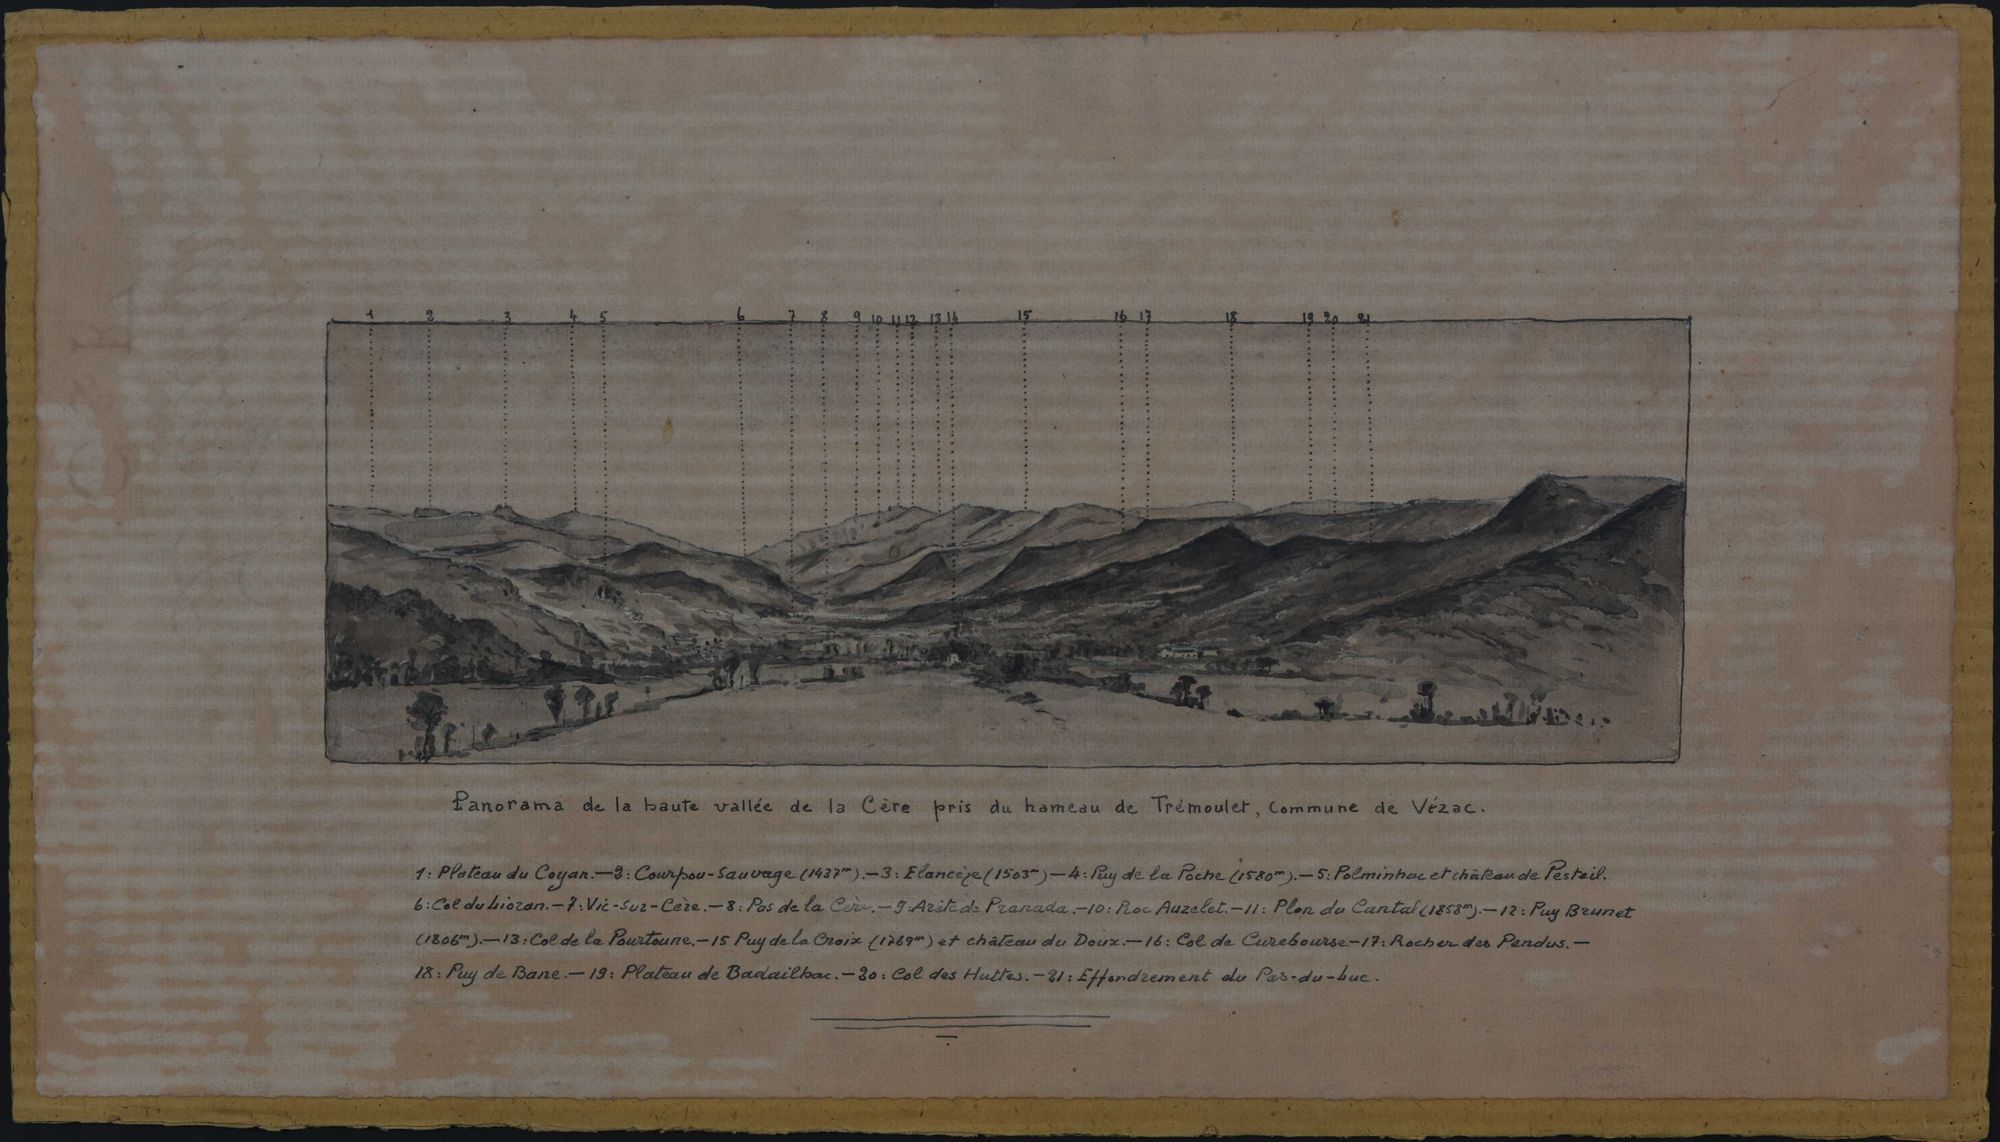 1 2 3 4 5 6 7 8 9 10 11 12 13 14 15 16 17 18 19 20 21
Panorama de la haute vallée de la Cère pris du hameau de Trémoulet, Commune de Vézac.
1: Plateau du Coyan.—2: Courpou-Sauvage (1437m).—3: Elancèze (1503m)—4: Puy de la Poche (1580m).—5: Polminhac et château de Pesteil.
6: Col du Lioran.—7: Vic-sur-Cère.—8: Pas de la Cère.—9: Arête de Pranada.—10: Roc Auzelet.—11: Plon du Cantal (1858m).—12: Puy Brunet
(1806m).—13: Col de la Pourtoune.—15 Puy de la Croix (1769m) et château du Doux.—16: Col de Curebourse—17: Rocher des Pendus.—
18: Puy de Bane.—19: Plateau de Badailhac.—20: Col des Huttes.—21: Effondrement du Pas-du-Luc.